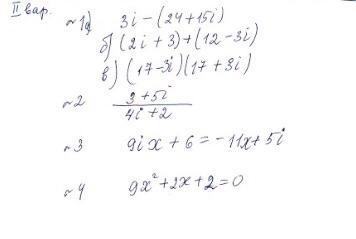 II вар.
~1а) 3i - (24+15i)
б) (2i + 3) + (12 - 3i)
в) (17-3i)(17+3i)
~2 3+5i
4i+2
~3 9ix + 6 = -11x + 5i
~4 9x²+2x+2=0